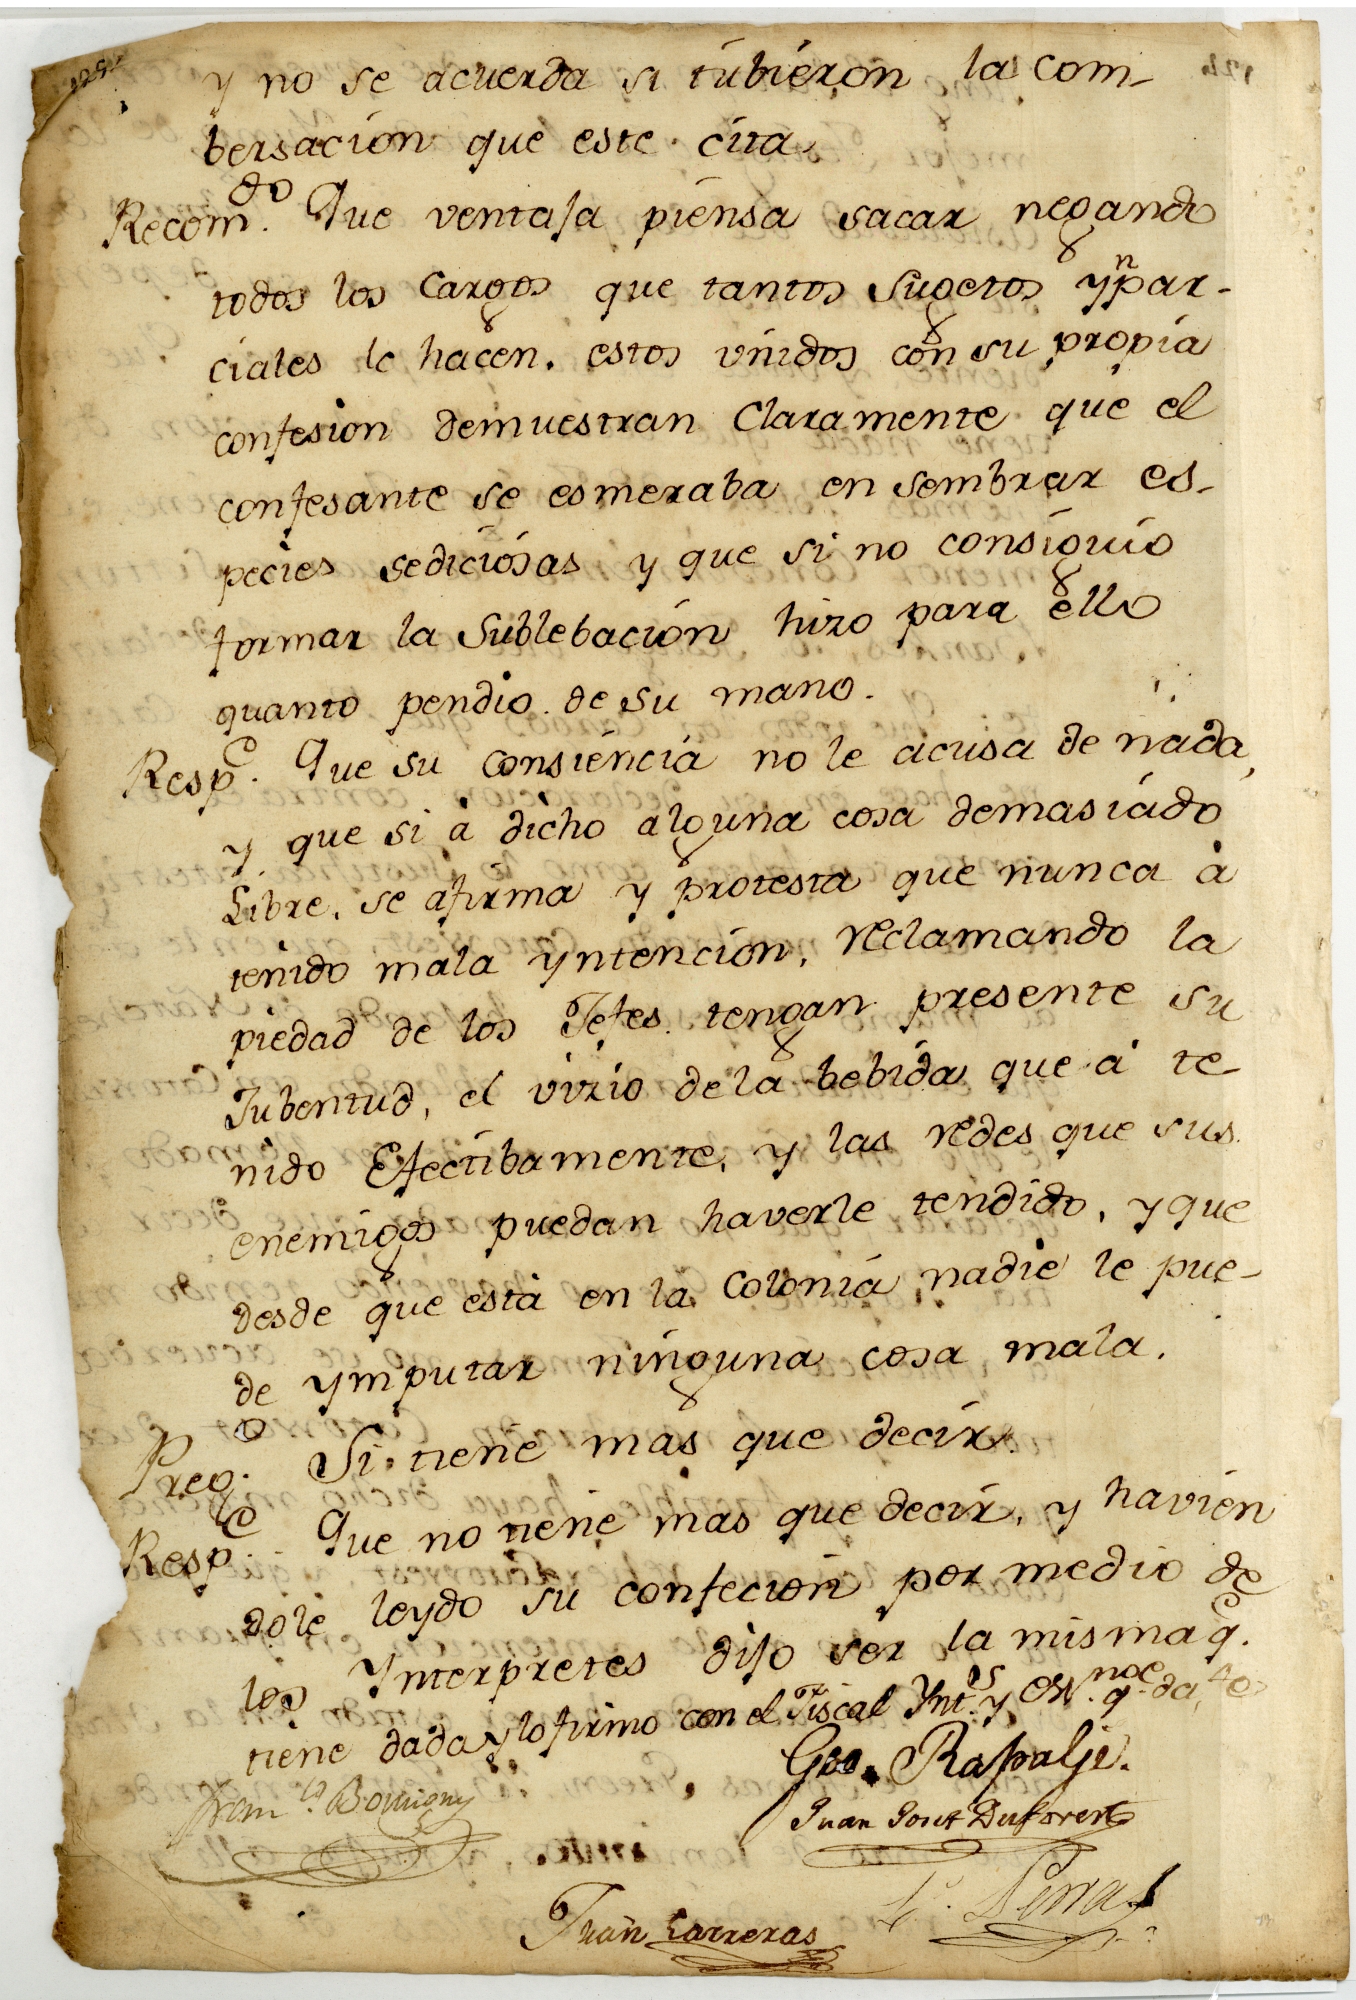 y no se acuerda si tubieron la com-
bersacion que este cita.
Recom.do Que ventaja piensa sacar negando
todos los cargos que tantos sugetos ynpar-
ciales le hacen. estos unidos con su propia
confesion demuestran Claramente que el
confesante se esmeraba en sembrar es-
pecies sediciosas y que si no consiguio
formar la Sublebacion hizo para ello
quanto pendio de su mano.
Resp.e Que su consiencia no le acusa de nada,
y que si à dicho alguna cosa demasiado
Libre. se afirma y protesta que nunca à
tenido mala yntencion, reclamando la
piedad de los Jefes tengan presente su
Jubentud, el vizio de la bebida que à te-
nido Efectibamente, y las redes que sus
enemigos puedan haverle tendido, y que
desde que està en la Colonia nadie le pue-
de ymputar ninguna cosa mala.
Preg.o Si tiene mas que decir.
Resp.e Que no tiene mas que decir, y havien
dole leydo su confecion por medio de
los Ynterpretes dijo ser la misma q.e
tiene dada y lo firmo con el Fiscal Ynt.s y
Geo. Rapalje.
Fran.co Bouligny
Juan
Juan Carreras